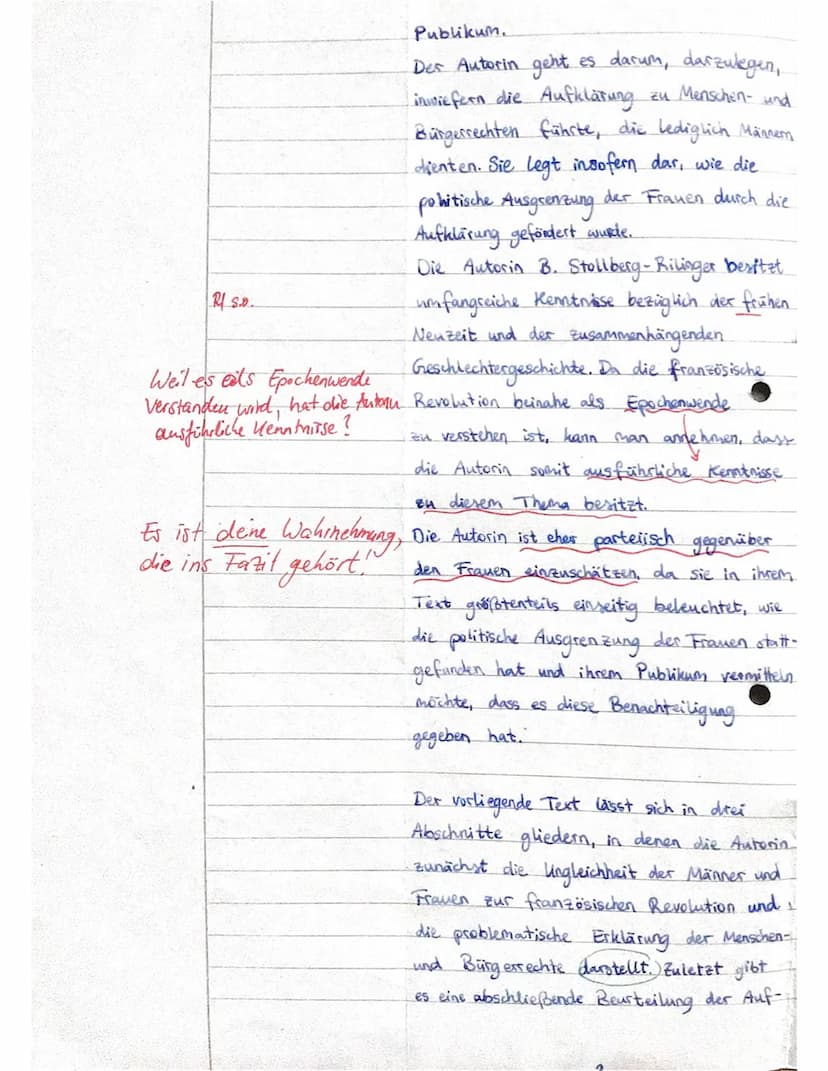 Publikum.
Der Autorin geht es darum, darzulegen,
inwiefern die Aufklärung zu Menschen- und
Bürgerrechten führte, die lediglich Männern
dienten. Sie legt insofern dar, wie die
politische Ausgrenzung der Frauen durch die
Aufklärung gefördert wurde.
Die Autorin B. Stollberg-Rilinger besitzt
R/ s.o.
umfangreiche Kenntnisse bezüglich der frühen
Neuzeit und der zusammenhängenden
Geschlechtergeschichte. Da die französische
Weil es als Epochenwende
verstanden wird, hat die Autorin
ausführliche Kenntnisse?
Revolution beinahe als Epochenwende
zu verstehen ist, kann man annehmen, dass
die Autorin somit ausführliche Kenntnisse
zu diesem Thema besitzt.
Es ist deine Wahrnehmung,
die ins Fazit gehört!
Die Autorin ist eher parteiisch gegenüber
den Frauen einzuschätzen, da sie in ihrem
Text größtenteils einseitig beleuchtet, wie
die politische Ausgrenzung der Frauen statt-
gefunden hat und ihrem Publikum vermitteln
möchte, dass es diese Benachteiligung
gegeben hat.
Der vorliegende Text lässt sich in drei
Abschnitte gliedern, in denen die Autorin
zunächst die Ungleichheit der Männer und
Frauen zur französischen Revolution und
die problematische Erklärung der Menschen-
und Bürgerrechte darstellt. Zuletzt gibt
es eine abschließende Beurteilung der Auf-